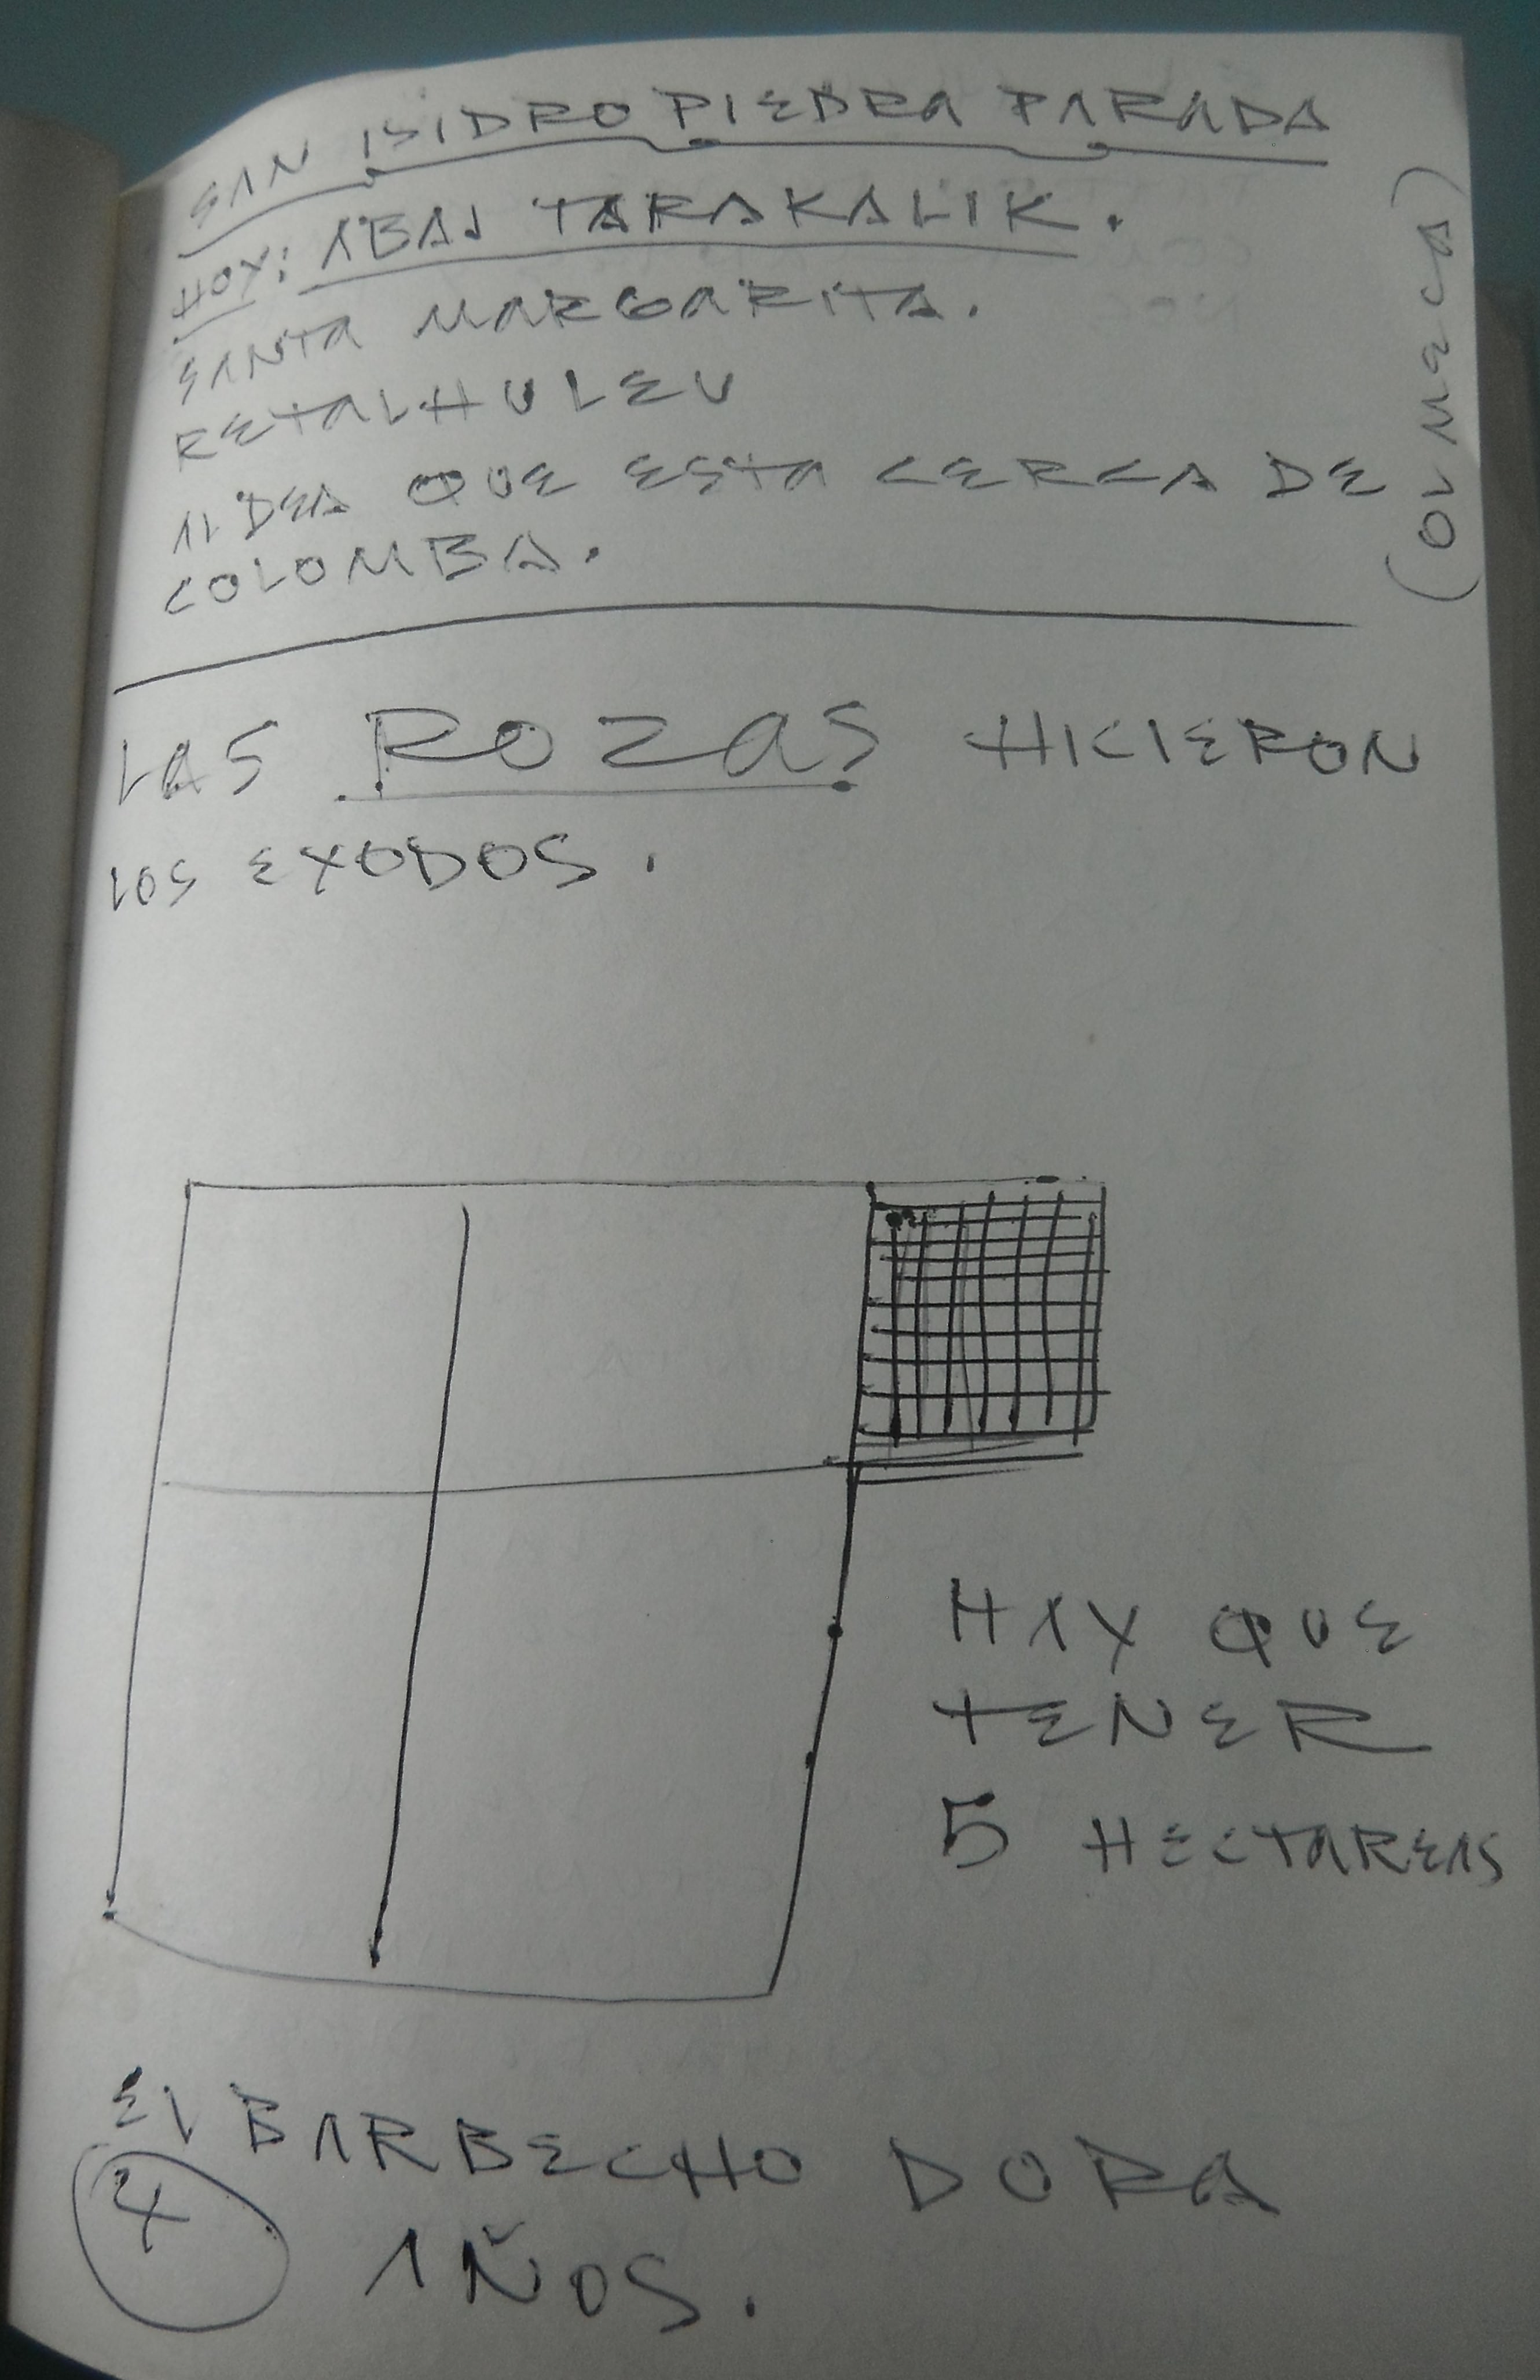 SAN ISIDRO PIEDRA PARADA
HOY: ABAJ TARAKALIK.
SANTA MARGARITA.
RETALHULEU
ALDEA QUE ESTA CERCA DE
COLOMBA.
(OLMECA)
LAS ROZAS HICIERON
LOS EXODOS.
HAY QUE
TENER
5 HECTAREAS
EL BARBECHO DORA
4 AÑOS.